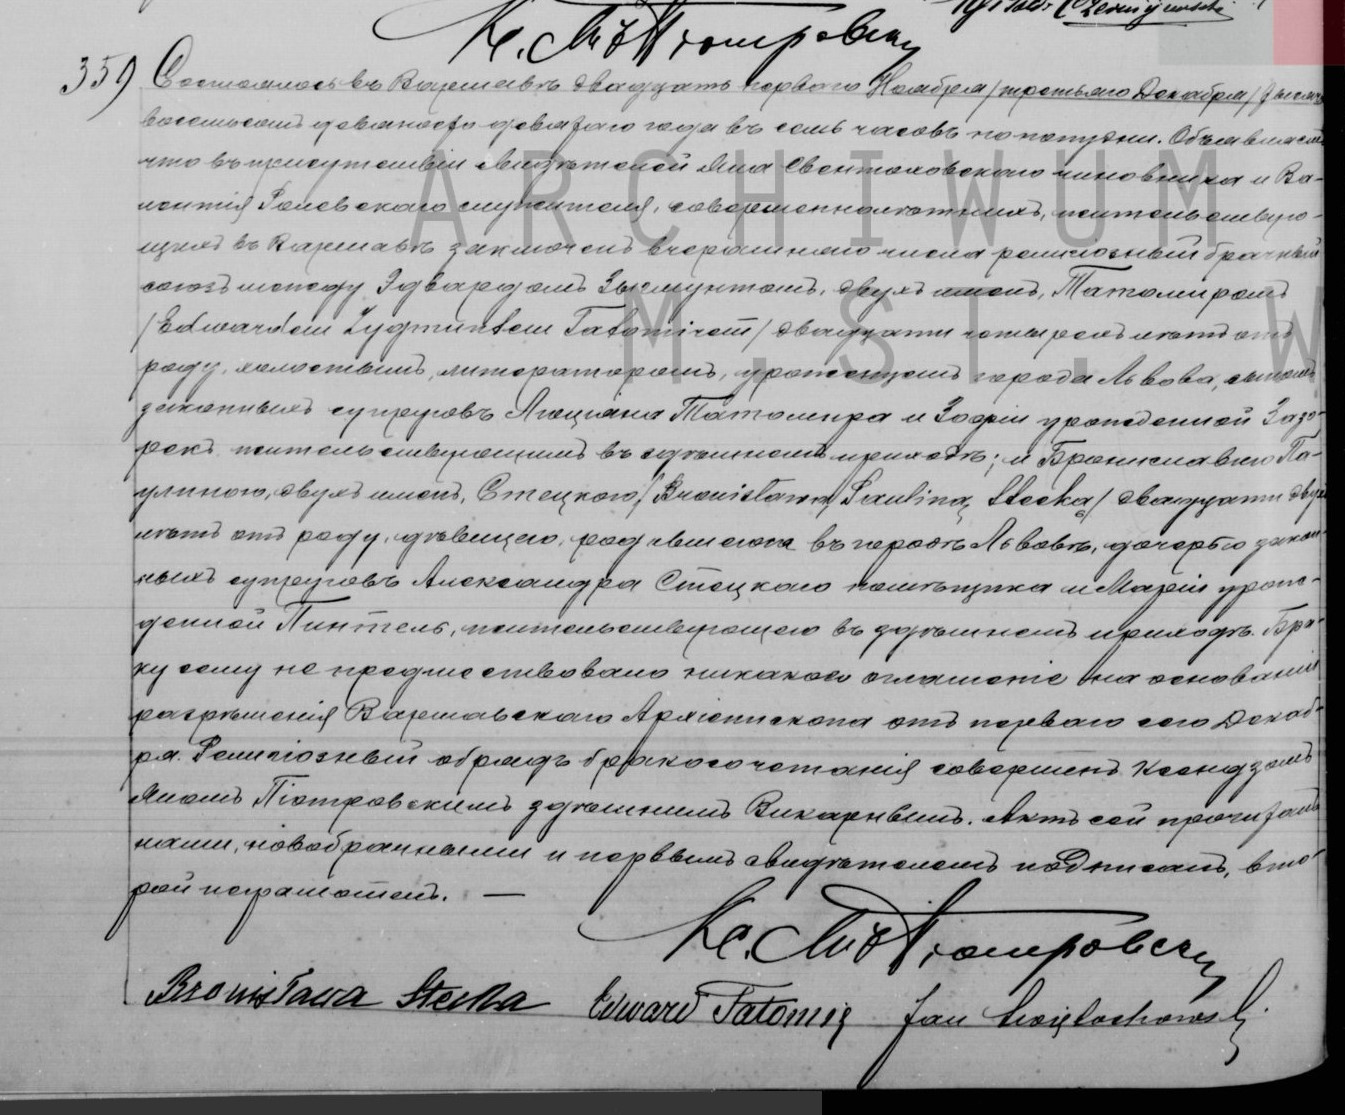 Кс. Піотровскій
359) Состоялось въ Варшавѣ двадцать перваго Ноября /третьяго Декабря/ тысяча
восемьсотъ девяносто девятаго года въ семь часовъ по полудни. Объявляемъ
что въ присутствіи свидѣтелей Яна Свентоховскаго чиновника и Ва-
лентія Ралевскаго служителя, совершеннолѣтнихъ, жительствую-
щихъ въ Варшавѣ заключенъ вчерашняго числа религіозный брачный
союзъ между Эдвардомъ Зыгмунтомъ, двухъ именъ, Татомиромъ
/Edwardem Zygmuntem Tatomirem/ двадцати четырехъ лѣтъ отъ
роду, холостымъ, литераторомъ, уроженцемъ города Львова, сыномъ
законныхъ супруговъ Люціана Татомира и Зофіи урожденной Заго-
рекъ жительствующимъ въ здѣшнемъ приходѣ; и Брониславою Па-
улиною, двухъ именъ, Стецкою /Bronisławą Pauliną Stecką/ двадцати двухъ
лѣтъ отъ роду, дѣвицею, родившеюся въ городѣ Львовѣ, дочерью закон-
ныхъ супруговъ Александра Стецкаго помѣщика и Маріи урож-
денной Пинтель, жительствующею въ здѣшнемъ приходѣ. Бра-
ку сему не предшествовало никакое оглашеніе на основаніи
разрѣшенія Варшавскаго Архіепископа отъ перваго сего Декаб-
ря. Религіозный обрядъ бракосочетанія совершенъ Ксендзомъ
Яномъ Піотровскимъ здѣшнимъ Викарнымъ. Актъ сей прочитанъ
нами, новобрачными и первымъ свидѣтелемъ подписанъ, вто-
рой неграмотенъ. —
Кс. Піотровскій
Bronisława Stecka Edward Tatomir Jan Świętochowski
ARCHIWUM
M. ST. W